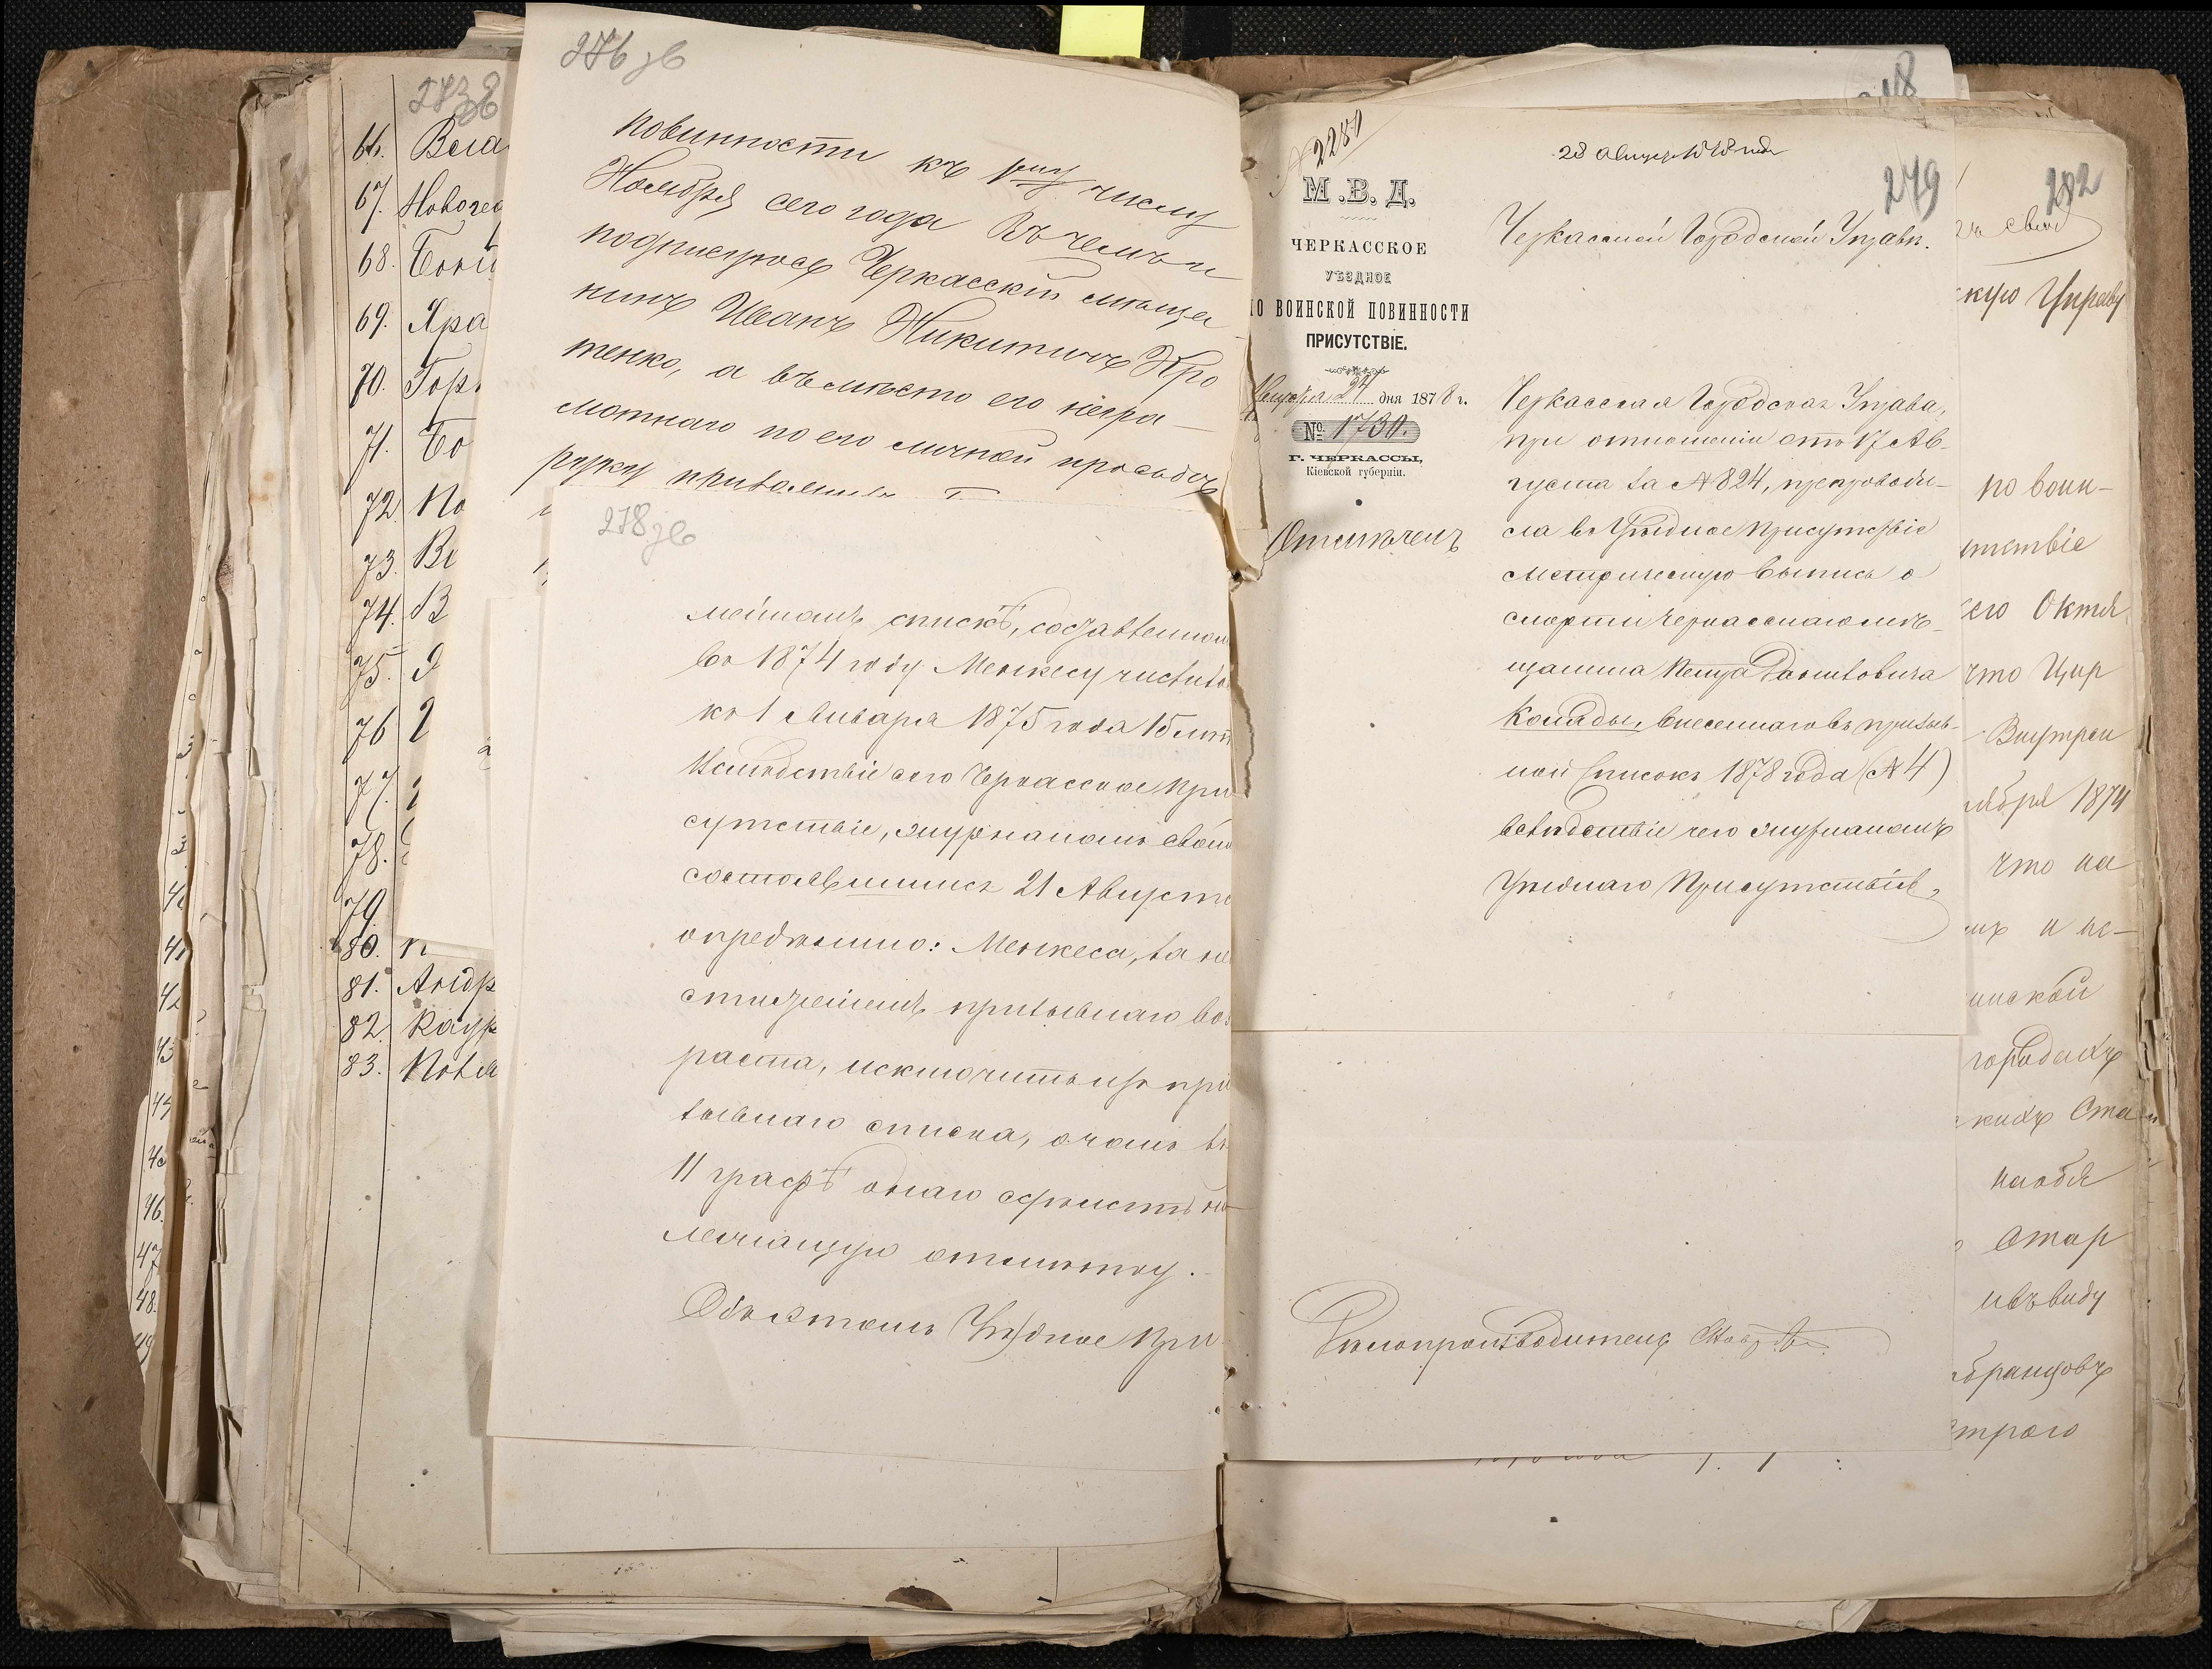 273об
66. Вела
67. Новогео
68.
69. Кра
70. Гор
71. Бо
72. По
73. Ве
74. В
75.
76
77.
78.
79
80. п
81. Андр
82. Каур
83. Повл
276 зв
повинности къ 1му числу
Ноября сего года Въ чемъ и
подписуюсь Черкасскій мѣща
нинъ Иванъ Никитичъ Кро
тенко, а вмѣсто его негра-
мотнаго по его личной прозьбѣ
278 зв
мейномъ спискѣ, составленном
въ 1874 году Менкесу числило
къ 1 Января 1875 года 15 лѣт
Вслѣдствіе сего Черкасское При
сутствіе, журналомъ своим
состоявшимся 21 Августа
опредѣлило: Менкеса, за не
достиженіемъ призывнаго воз
раста, исключить изъ при
зывнаго списка, о чемъ въ
11 графѣ онаго сдѣлать на
лежащую отмѣтку.
Объ этомъ Уѣздное При
2281
М.В.Д.
ЧЕРКАССКОЕ
УѢЗДНОЕ
ПО ВОИНСКОЙ ПОВИННОСТИ
ПРИСУТСТВІЕ.
Августа 24 дня 1878 г.
№ 1730.
Г. ЧЕРКАССЫ,
Кіевской губерніи.
28 августа 1878 года
279
Черкасской Городской Управѣ.
Черкасская Городская Управа,
при отношеніи отъ 17 Ав-
густа за № 824, препроводи-
ла въ Уѣздное Присутствіе
метрическую выпись о
смерти черкасскаго мѣ-
щанина Петра Даниловича
Коляды, внесеннаго въ призыв-
ной списокъ 1878 года (№ 4)
вслѣдствіе чего журналомъ
Уѣзднаго Присутствія,
Дѣлопроизводитель
282
скую Управу
по воин-
тствіе
сего Октя
что Цир
Внутрен
ября 1874
что на
и не-
инской
городахъ
кихъ Ста
наобя
Стар
ивъ виду
бранцовъ
строго